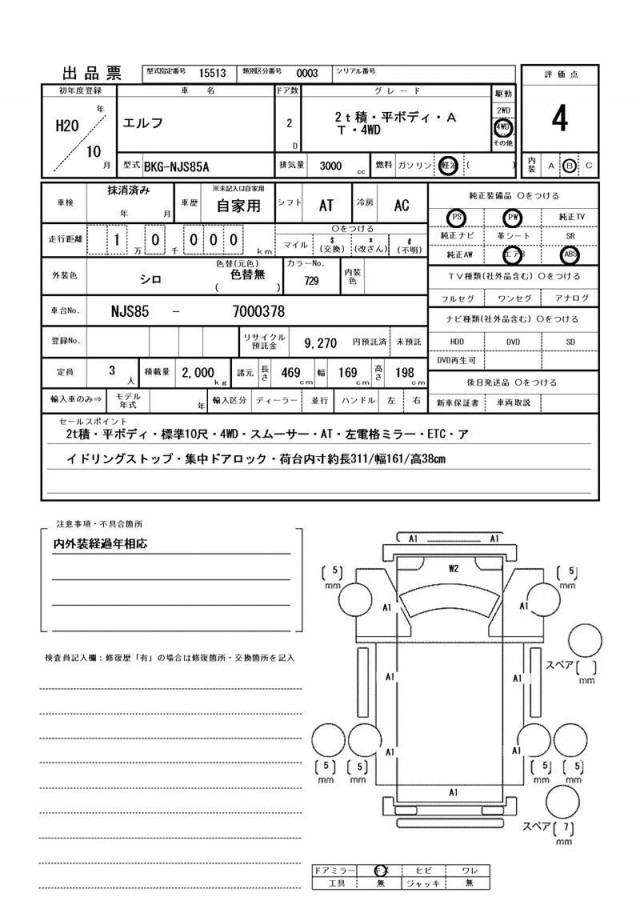 出品票 型式指定番号 15513 類別区分番号 0003 シリアル番号
評価点
4
内装 A B C
初年度登録 車名 ドア数 グレード 駆動
H20 年 10 月 エルフ 2 D 2t積・平ボディ・A
T・4WD
2WD
4WD
その他
型式 BKG-NJS85A 排気量 3000 cc 燃料 ガソリン 軽油 ( )
車検 抹消済み 年 月 車歴 ※未記入は自家用 自家用 シフト AT 冷房 AC
走行距離 1 万 0 千 0 0 0 km
○をつける
マイル $(交換) *(改ざん) #(不明)
外装色 シロ 色替(元色) 色替無 ( ) カラーNo. 729 内装色
車台No. NJS85 - 7000378
登録No. リサイクル預託金 9,270 円預託済 未預託
定員 3 人 積載量 2,000 kg 諸元 長さ 469 cm 幅 169 cm 高さ 198 cm
輸入車のみ⇒ モデル年式 年 輸入区分 ディーラー 並行 ハンドル 左 右
純正装備品 ○をつける
PS PW 純正TV
純正ナビ 革シート SR
純正AW エアB ABS
TV種類(社外品含む) ○をつける
フルセグ ワンセグ アナログ
ナビ種類(社外品含む) ○をつける
HDD DVD SD
DVD再生可
後日発送品 ○をつける
新車保証書 車両取説
セールスポイント
2t積・平ボディ・標準10尺・4WD・スムーサー・AT・左電格ミラー・ETC・ア
イドリングストップ・集中ドアロック・荷台内寸約長311/幅161/高38cm
注意事項・不具合箇所
内外装経過年相応
検査員記入欄：修復歴「有」の場合は修復箇所・交換箇所を記入
A1 A1
W2
(5) mm (5) mm
A1 A1
スペア( ) mm
A1 A1
A1 A1
(5) mm (5) mm (5) mm (5) mm
A1
スペア(7) mm
ドアミラー キズ ヒビ ワレ
工具 無 ジャッキ 無